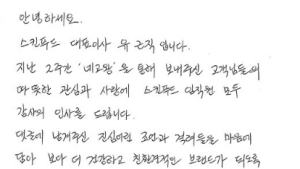 안녕하세요.
스킨푸드 대표이사 유 근직 입니다.
지난 2주간 '네고왕'을 통해 보내주신 고객님들의
따뜻한 관심과 사랑에 스킨푸드 임직원 모두
감사의 인사를 드립니다.
댓글에 남겨주신 진심어린 조언과 격려들을 마음에
담아 보다 더 건강하고 친환경적인 브랜드가 되도록